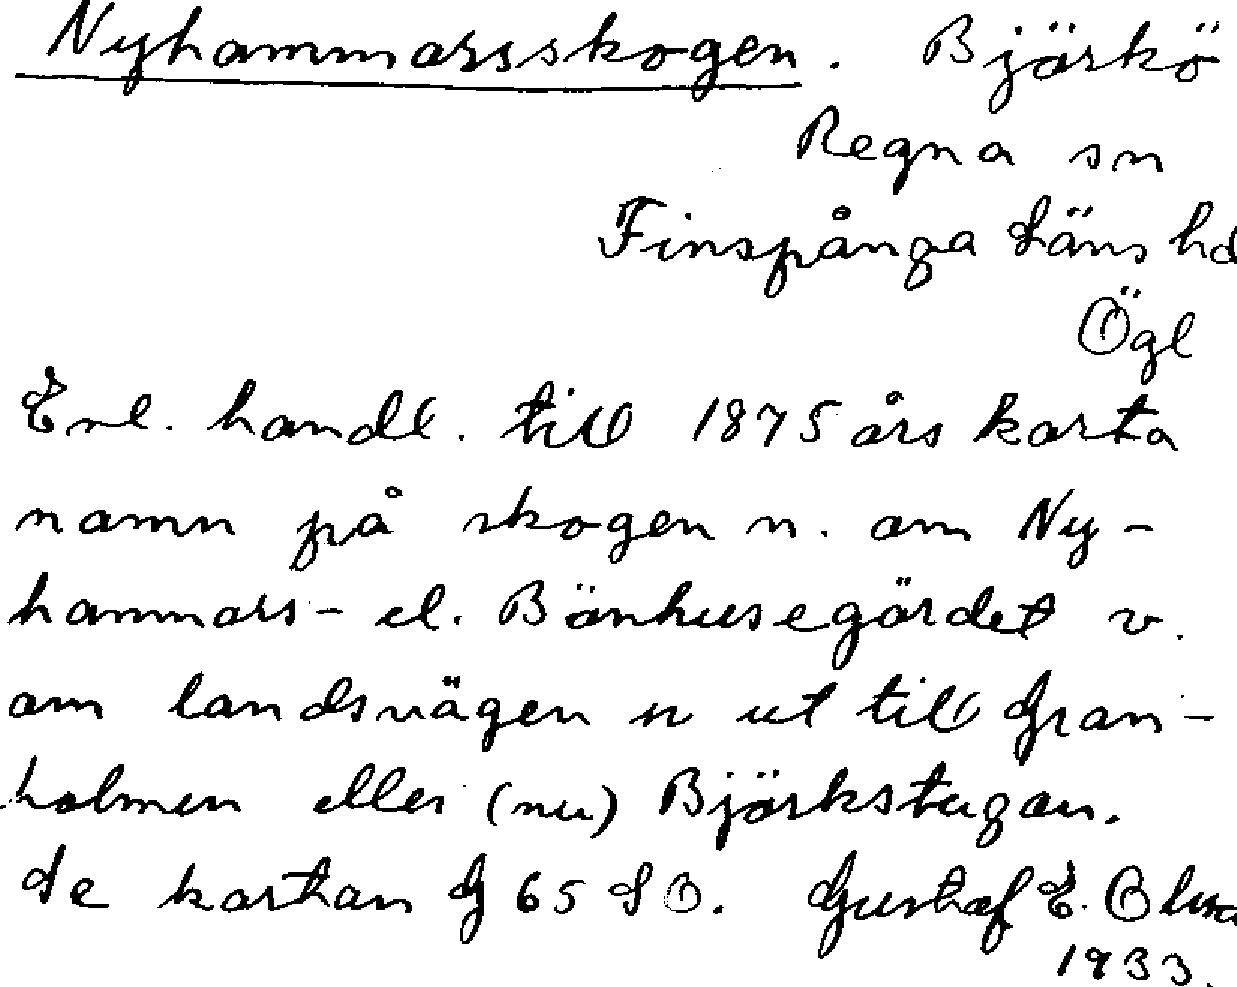 Nyhammarsskogen. Björkö
Regna sn
Finspånga läns hd
Ögl
Enl. handl. till 1875 års karta
namn på skogen n. om Ny-
hammars- el. Bönhusegärdet v.
om landsvägen n ut till Gran-
holmen eller (nu) Björkstugan.
Se kartan G 65 SO. Gustaf E. Olss
1933.